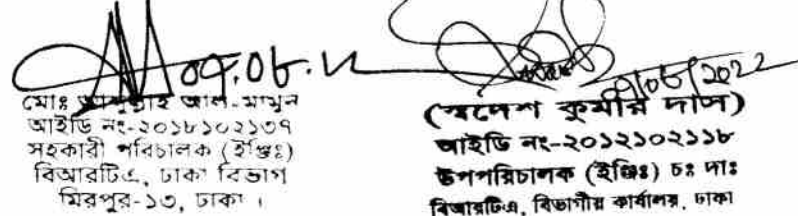 ০৭.০৮.২২
মোঃ আব্দুল্লাহ আল-মামুন
আইডি নং-২০১৮১০২১৩৭
সহকারী পরিচালক (ইঞ্জিঃ)
বিআরটিএ, ঢাকা বিভাগ
মিরপুর-১৩, ঢাকা ।
০৭/০৮/2022
(স্বদেশ কুমার দাস)
আইডি নং-২০১২১০২১১৮
উপপরিচালক (ইঞ্জিঃ) চঃ দাঃ
বিআরটিএ, বিভাগীয় কার্যালয়, ঢাকা